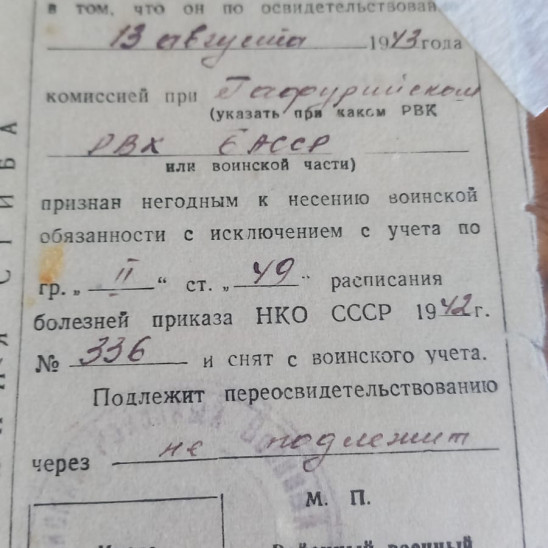 в том, что он по освидетельствован
13 августа 1943 года
комиссией при Гафурийском
(указать при каком РВК
РВК БАССР
или воинской части)
признан негодным к несению воинской
обязанности с исключением с учета по
гр. „ II “ ст. „ 49 “ расписания
болезней приказа НКО СССР 1942 г.
№ 336 и снят с воинского учета.
Подлежит переосвидетельствованию
через не подлежит
М. П.
военный